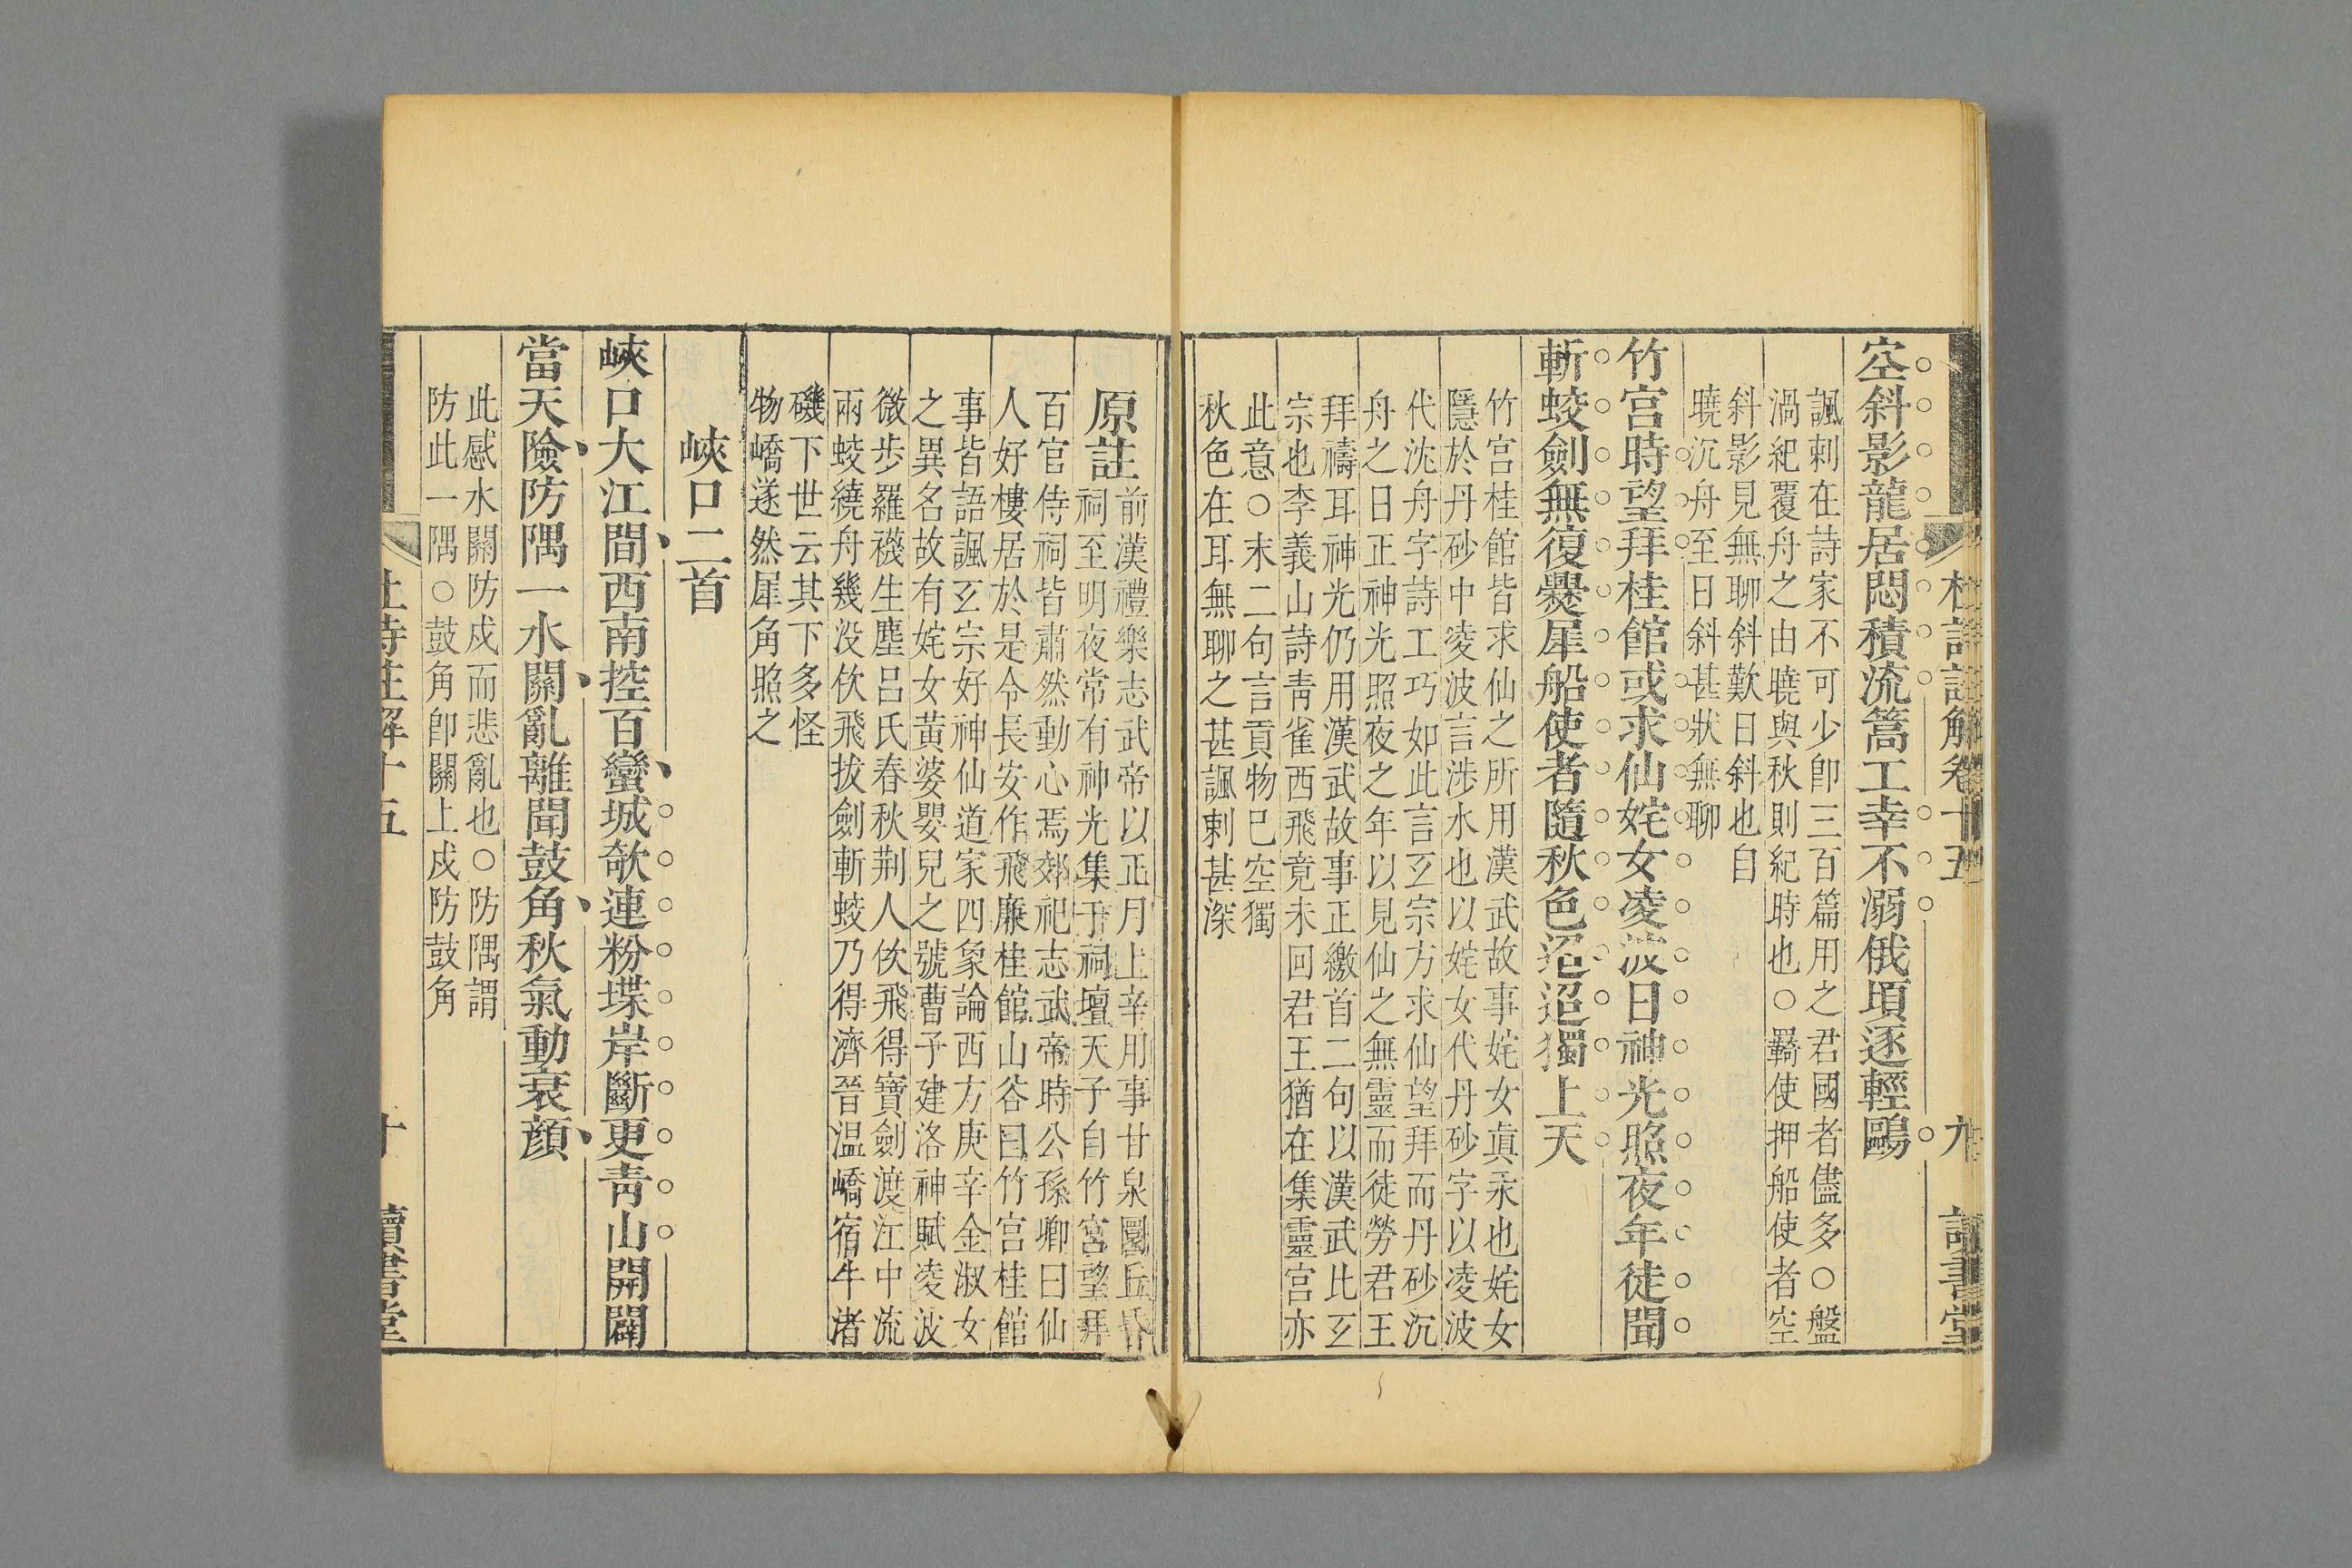 杜詩註解卷十五 九 讀書堂
空斜影龍居悶積流篙工幸不溺俄頃逐輕鷗
諷刺在詩家不可少卽三百篇用之君國者儘多○盤
渦紀覆舟之由曉與秋則紀時也○羇使押船使者空
斜影見無聊斜歎日斜也自
曉沉舟至日斜甚狀無聊
竹宮時望拜桂館或求仙姹女凌波日神光照夜年徒聞
斬蛟劍無復爨犀船使者隨秋色迢迢獨上天
竹宮桂館皆求仙之所用漢武故事姹女眞汞也姹女
隱於丹砂中凌波言涉水也以姹女代丹砂字以凌波
代沈舟字詩工巧如此言玄宗方求仙望拜而丹砂沉
舟之日正神光照夜之年以見仙之無靈而徒勞君王
拜禱耳神光仍用漢武故事正繳首二句以漢武比玄
宗也李義山詩靑雀西飛竟未回君王猶在集靈宮亦
此意○末二句言貢物已空獨
秋色在耳無聊之甚諷刺甚深
原註
前漢禮樂志武帝以正月上辛用事甘泉圜丘昏
祠至明夜常有神光集于祠壇天子自竹宮望拜
百官侍祠皆肅然動心焉郊祀志武帝時公孫卿曰仙
人好樓居於是令長安作飛廉桂館山谷曰竹宮桂館
事皆語諷玄宗好神仙道家四象論西方庚辛金淑女
之異名故有姹女黃婆嬰兒之號曹子建洛神賦凌波
微步羅襪生塵呂氏春秋荆人佽飛得寶劍渡江中流
兩蛟繞舟幾没佽飛拔劍斬蛟乃得濟晉温嶠宿牛渚
磯下世云其下多怪
物嶠遂然犀角照之
峽口二首
峽口大江間西南控百蠻城欹連粉堞岸斷更靑山開闢
當天險防隅一水關亂離聞鼓角秋氣動衰顏
此感水關防戍而悲亂也○防隅謂
防此一隅○鼓角卽關上戍防鼓角
杜詩註解十五 十 讀書堂